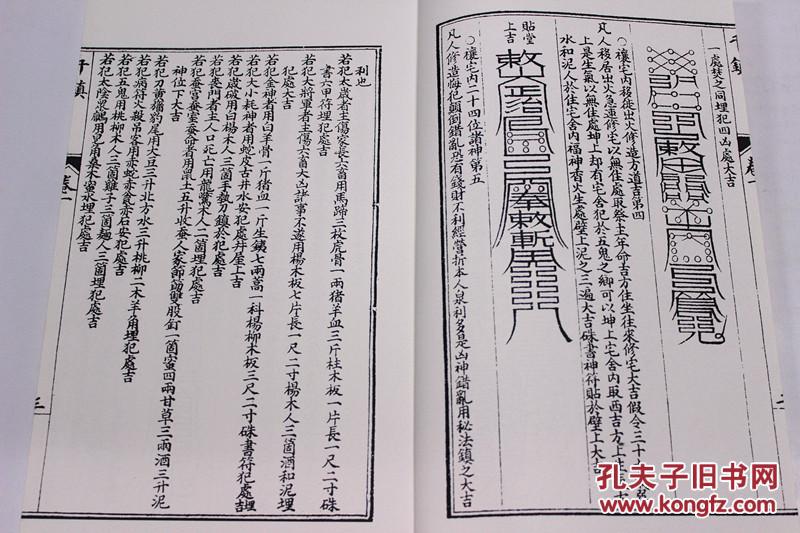 一處焚之同埋犯四凶處大吉
○禳宅內移徙出火修造方道吉第四
凡人移居出火急蓮修宅以無住處取祭主年命吉方住坐往來修宅大吉假令三十
上是生氣以無住處坤上却有宅舍犯於五鬼之鄉可以坤上宅舍內取西吉方上
水和泥人於住宅舍內福神香火生處壁上泥之三遍大吉硃書神符貼於壁上大吉
貼堂上吉
○禳宅內二十四位諸神第五
凡人修造悔犯顛倒錯亂恐有錢財不利經營折本人泉利多是凶神錯亂用秘法鎮之大吉
利也
若犯太歲者主傷家長六畜用馬蹄三枚虎骨一兩猪羊血三斤柱木板一片長一尺二寸硃
書六甲符埋犯處吉
若犯大將軍者主傷六畜大凶計事不遂用楊木板七片長一尺二寸楊木人三箇酒和泥埋
犯處大吉
若犯金神者用白羊骨一斤猪血一斤生鐵七兩蒿一科楊柳木板三尺二寸硃書符犯處埋吉
若犯大小耗神者用蛇皮古井水安犯處井屋上吉
若犯歲破用白楊木人三箇手執刀鎮於犯處吉
若犯喪門者主人口死亡用龍鷲木人二箇埋犯處吉
若犯蚕官蚕室蚕命者用鼠土五升收蚕人家節節雙股釘一箇蜜四兩甘草三兩酒三升泥
神位下大吉
若犯力黄旛豹尾用大豆三升北方水三升桃柳二木羊角埋犯處吉
若犯病符火殺吊客用赤蛇赤豆赤石安犯處吉
若犯五鬼用桃柳木人三箇雞子三箇麺人三箇埋犯處吉
若犯大陰
卷一
三
孔夫子旧书网
www.kongfz.com